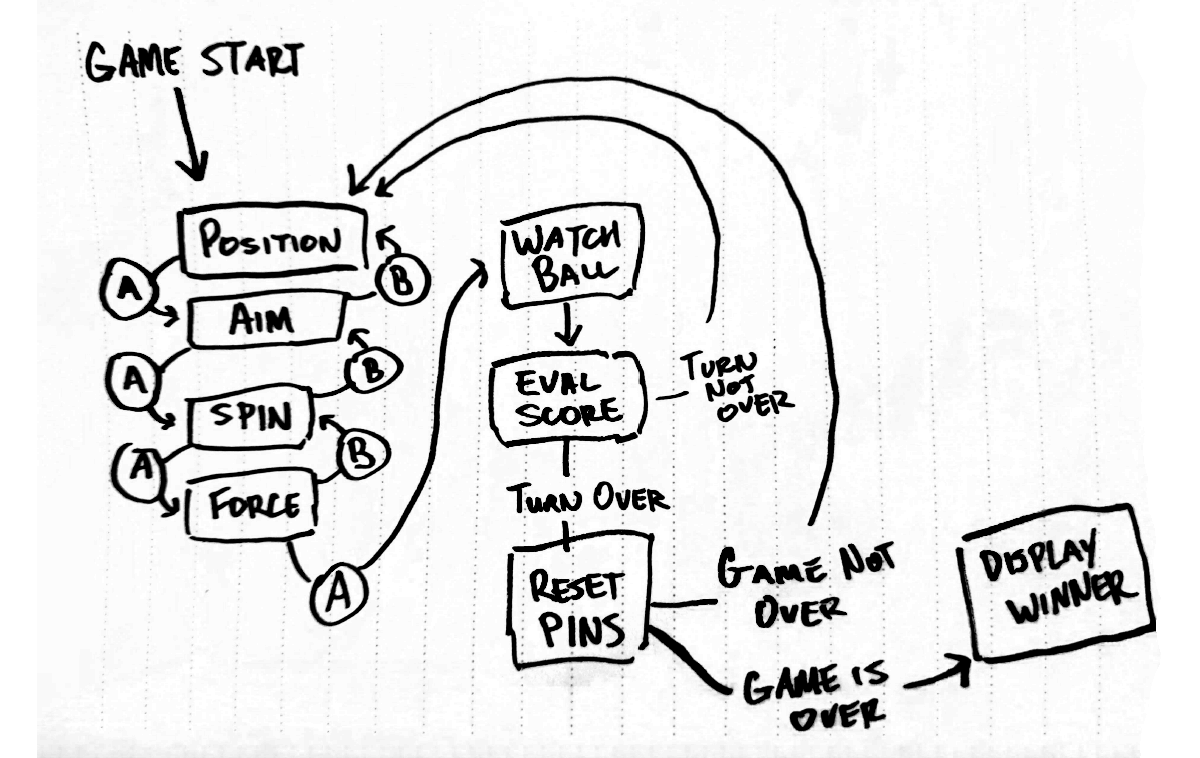 GAME START
POSITION
A
B
AIM
A
B
SPIN
A
B
FORCE
A
WATCH
BALL
EVAL
SCORE
TURN
NOT
OVER
TURN OVER
RESET
PINS
GAME NOT
OVER
GAME IS
OVER
DISPLAY
WINNER